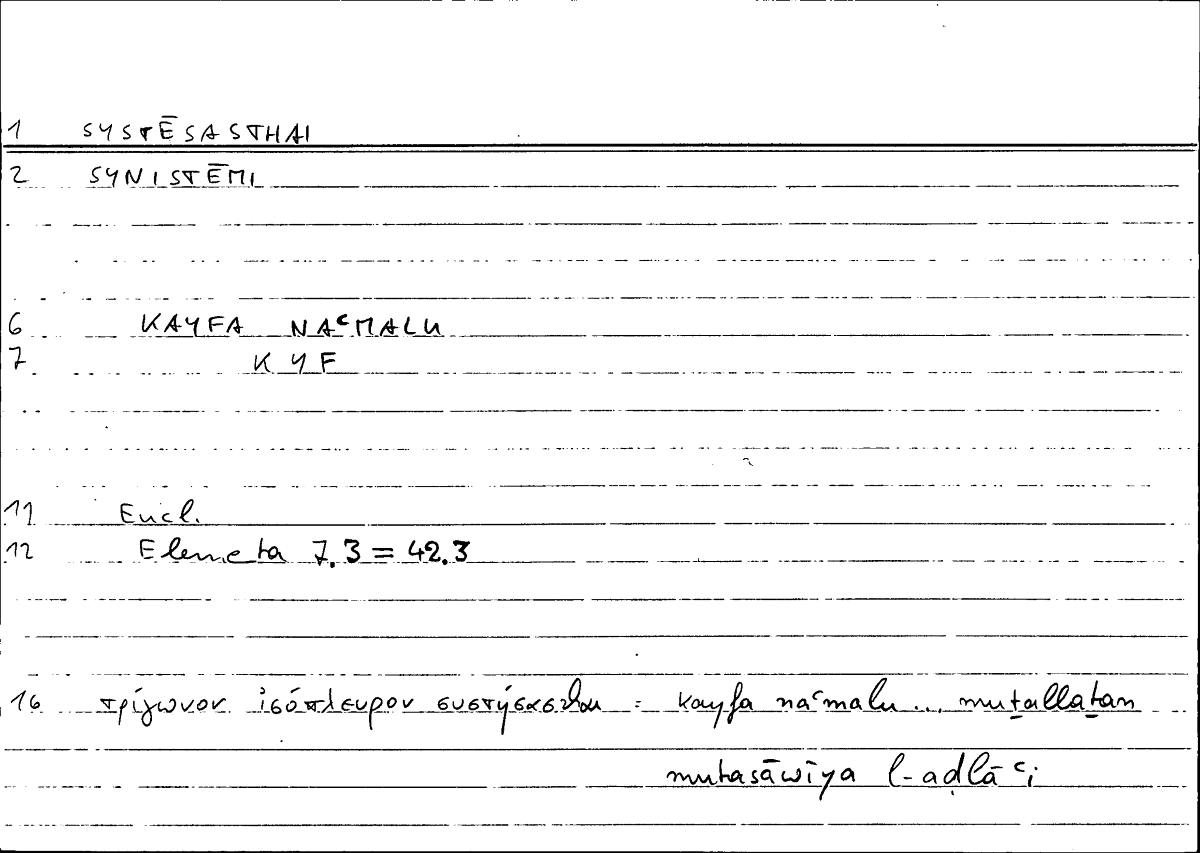 1 SYSTĒSASTHAI
2 SYNISTĒMI
6 KAYFA NAʿMALU
7 KYF
11 Eucl.
12 Elemeta 7.3 = 42.3
16 τρίγωνον ἰσόπλευρον συστήσασθαι : kayfa naʿmalu ... muṯallaṯan
mutasāwīya l-aḍlāʿi